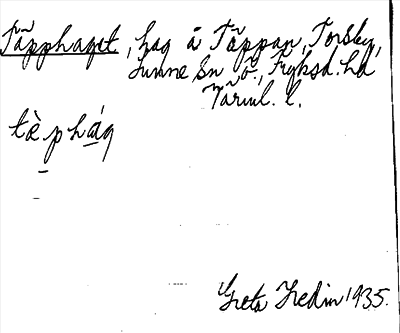 Täpphaget, hag å Täppan, Torsby,
Sunne sn ö., Fryksd. hd
Värml. l.
tὲphág
Greta Hedin 1935.